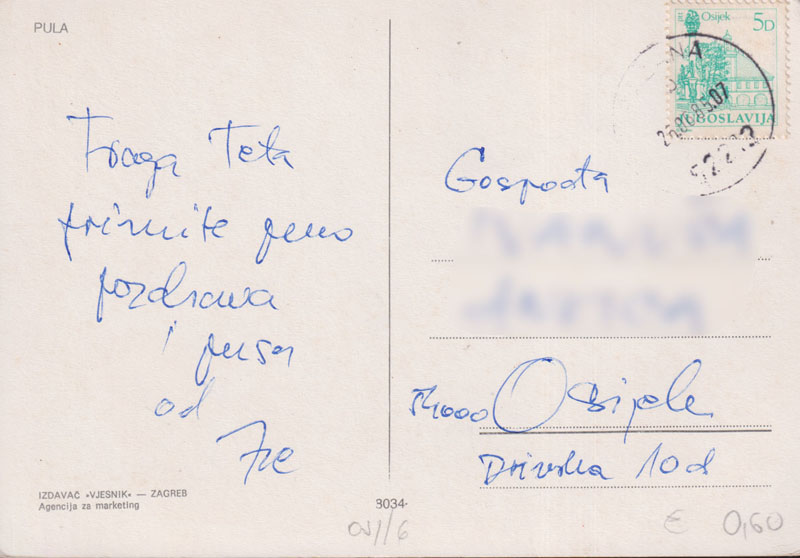 PULA
Draga Teta
primite puno
pozdrava
i pusa
od
IZDAVAČ «VJESNIK» — ZAGREB
Agencija za marketing
3034
Osijek
5D
JUGOSLAVIJA
52223
Gospođa
54000 Osijek
Drivska 10d
€ 0,60